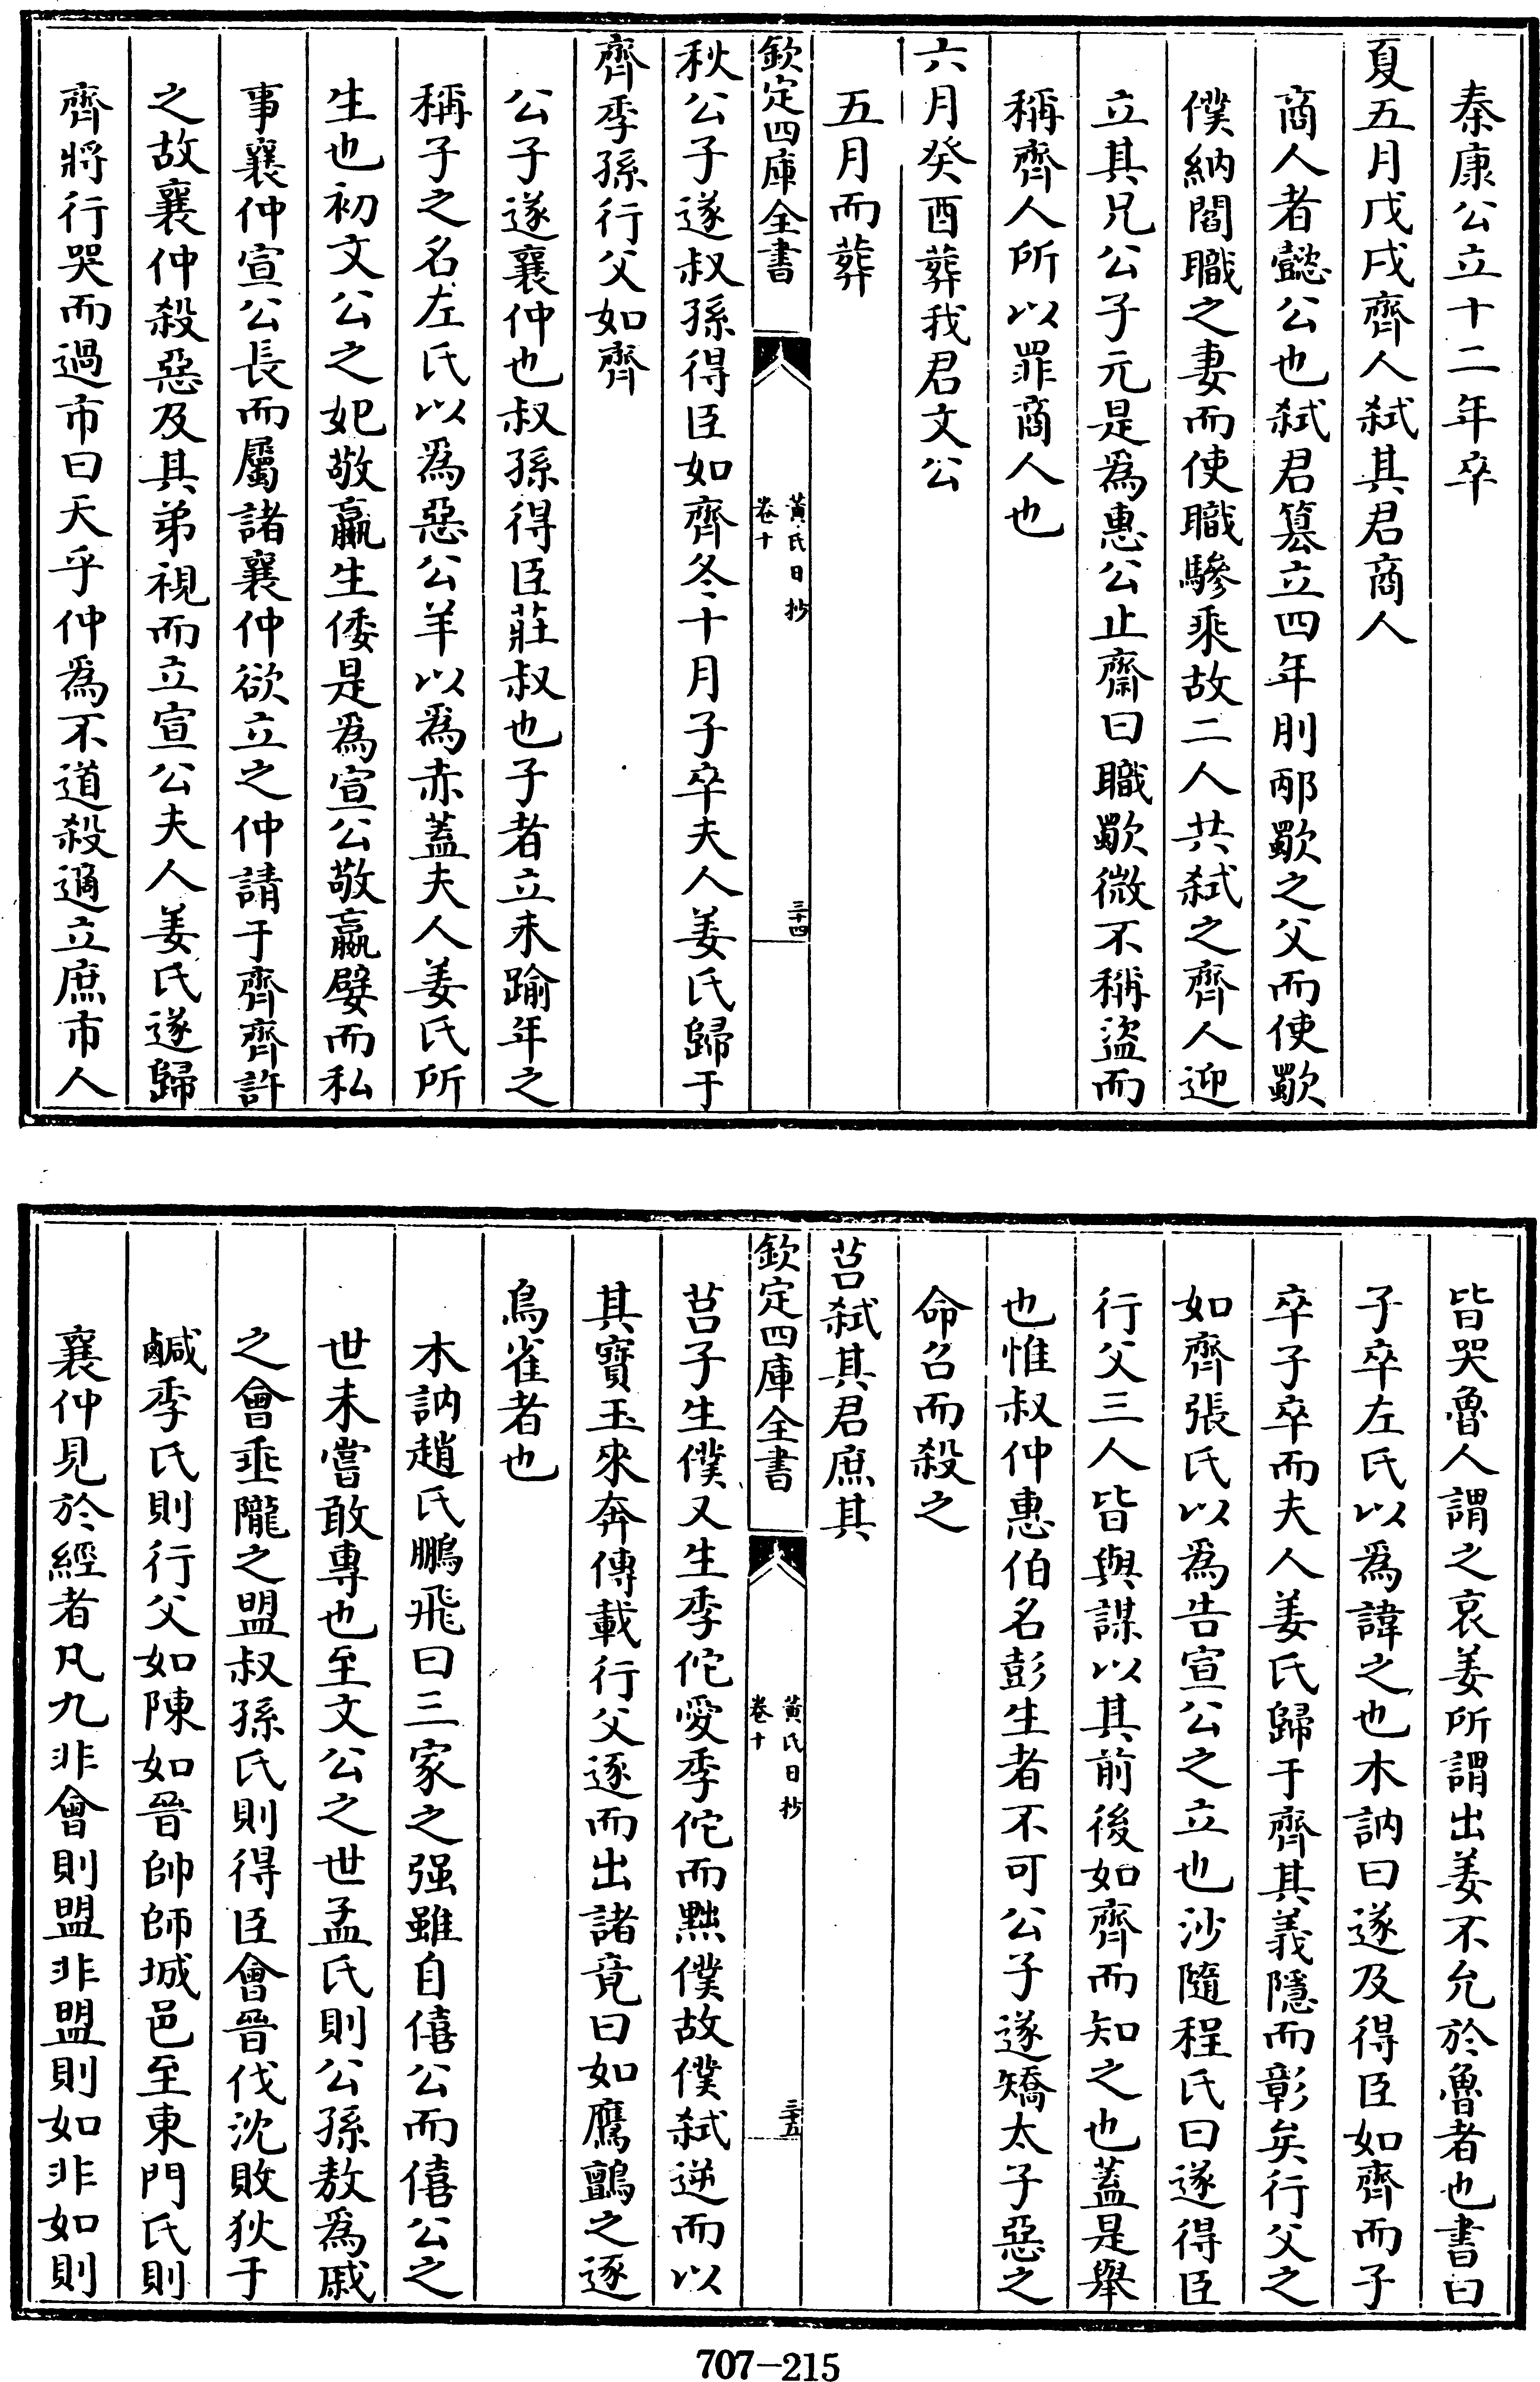 秦康公立十二年卒
夏五月戊戌齊人弑其君商人
商人者懿公也弑君簒立四年刖邴歜之父而使歜
僕納閻職之妻而使職驂乘故二人共弑之齊人迎
立其兄公子元是爲惠公止齋曰職歜微不稱盜而
稱齊人所以罪商人也
六月癸酉葬我君文公
五月而葬
欽定四庫全書
黄氏日抄
卷十
三十四
秋公子遂叔孫得臣如齊冬十月子卒夫人姜氏歸于
齊季孫行父如齊
公子遂襄仲也叔孫得臣莊叔也子者立未踰年之
稱子之名左氏以爲惡公羊以爲赤蓋夫人姜氏所
生也初文公之妃敬嬴生倭是爲宣公敬嬴嬖而私
事襄仲宣公長而屬諸襄仲欲立之仲請于齊齊許
之故襄仲殺惡及其弟視而立宣公夫人姜氏遂歸
齊將行哭而過市曰天乎仲爲不道殺適立庶市人
皆哭魯人謂之哀姜所謂出姜不允於魯者也書曰
子卒左氏以爲諱之也木訥曰遂及得臣如齊而子
卒子卒而夫人姜氏歸于齊其義隱而彰矣行父之
如齊張氏以爲告宣公之立也沙隨程氏曰遂得臣
行父三人皆與謀以其前後如齊而知之也蓋是舉
也惟叔仲惠伯名彭生者不可公子遂矯太子惡之
命召而殺之
莒弑其君庶其
欽定四庫全書
黄氏日抄
卷十
三十五
莒子生僕又生季佗愛季佗而黜僕故僕弑逆而以
其寶玉來奔傳載行父逐而出諸竟曰如鷹鸇之逐
鳥雀者也
木訥趙氏鵬飛曰三家之强雖自僖公而僖公之
世未嘗敢專也至文公之世孟氏則公孫敖爲戚
之會垂隴之盟叔孫氏則得臣會晉伐沈敗狄于
鹹季氏則行父如陳如晉帥師城邑至東門氏則
襄仲見於經者凡九非會則盟非盟則如非如則
707-215